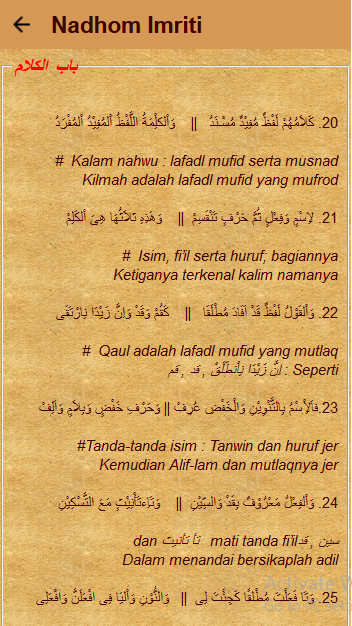 Nadhom Imriti
باب الكلام
20. كَلاَمُهُمْ لَفْظٌ مُفِيْدٌ مُسْنَدُ || وَالْكِلْمَةُ اللَّفْظُ الْمُفِيْدُ الْمُفْرَدُ
# Kalam nahwu : lafadl mufid serta musnad
Kilmah adalah lafadl mufid yang mufrod
21. لاِسْمٍ وَفِعْلٍ ثُمَّ حَرْفٍ تَنْقَسِمْ || وَهَذِهِ ثَلاَثُهَا هِيَ الْكَلِمْ
# Isim, fi'il serta huruf, bagiannya
Ketiganya terkenal kalim namanya
22. وَالْقَوْلُ لَفْظٌ قَدْ اَفَادَ مُطْلَقَا || كَقُمْ وَقَدْ وَاِنَّ زَيْدًا نِارْتَقَى
# Qaul adalah lafadl mufid yang mutlaq
Seperti : اِنَّ زَيْدًا يَاْنطَلَقْ , قد , قم
23. فَالاِسْمُ بِالتَّنْوِيْنِ وَالْخَفْضِ عُرِفْ || وَحَرْفِ خَفْضٍ وَبِلاَمٍ وَاَلِفْ
#Tanda-tanda isim : Tanwin dan huruf jer
Kemudian Alif-lam dan mutlaqnya jer
24. وَالْفِعْلُ مَعْرُوْفٌ بِقَدْ وَالسِّيْنِ || وَتَاءِتَأْنِيْثٍ مَعَ التَّسْكِيْنِ
dan تأ تأنيث mati tanda fi'il قد, سين
Dalam menandai bersikaplah adil
25. وَتَا فَعَلْتَ مُطْلَقًا كَجِئْتَ لِى || وَالنُّوْنِ وَالْيَا فِى افْعَلَنَّ وَافْعَلِى